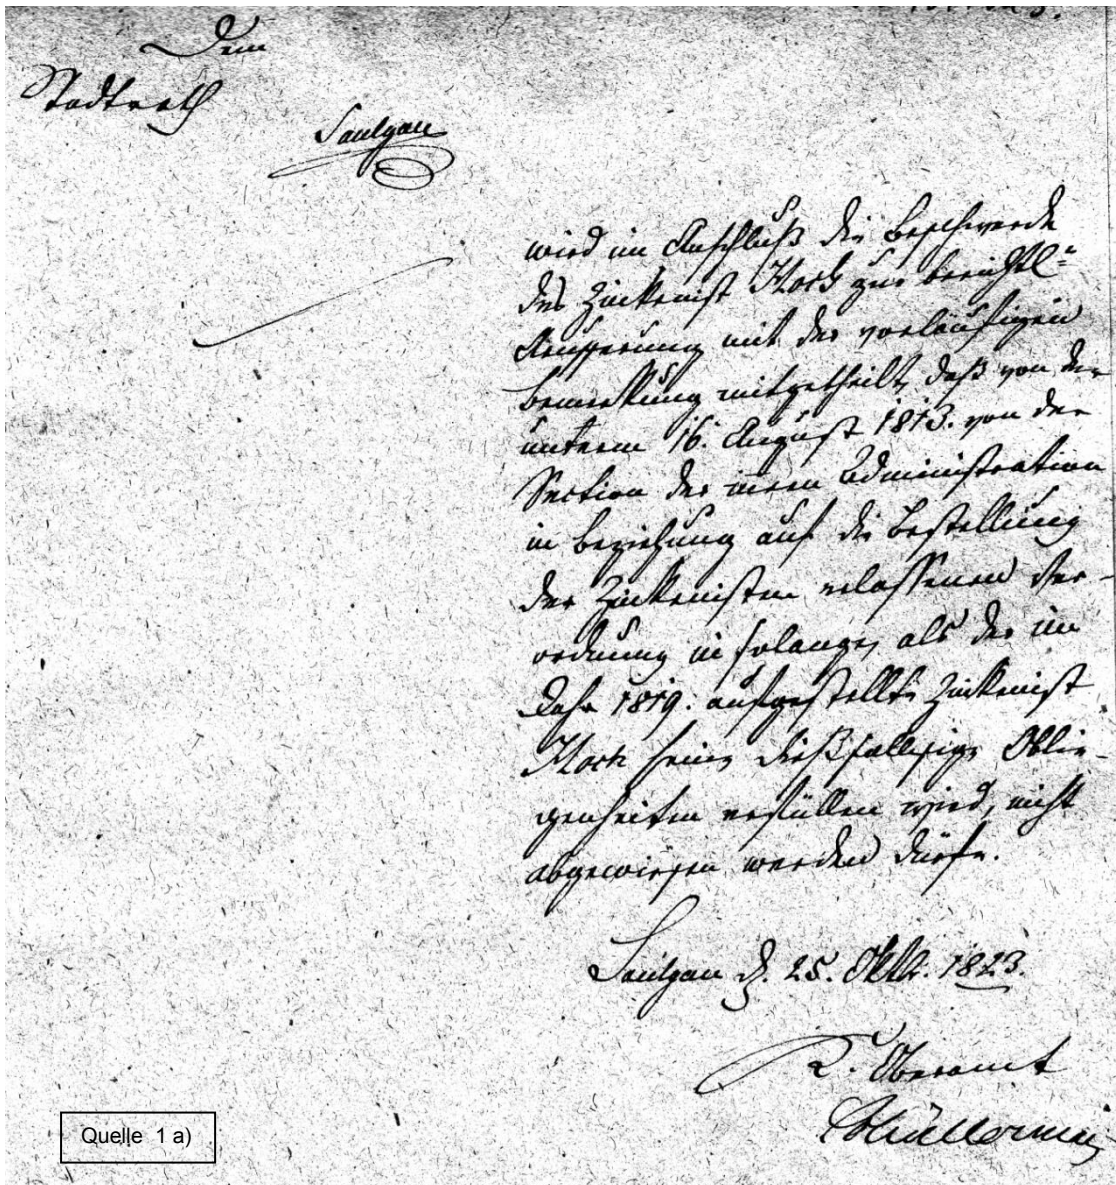 Dem
Stadtrath
Saulgau
wird im Anschluß die Beschwerde
des Zinkenist Kock zur berichtl=
Aeusserung mit der vorläufigen
Bemerkung mitgetheilt, daß von der
unterm 16. August 1813. von der
Section der inern Administration
in Beziehung auf die Bestellung
der Zinkenisten erlassenen Ver-
ordnung in solange, als der im
Jahr 1819. aufgestellte Zinkenist
Kock seine dießfallsige Oblie-
genheiten erfüllen wird, nicht
abgewiesen werden dürfe.
Saulgau d. 25. Oktb. 1823.
K. Oberamt
Quelle 1 a)